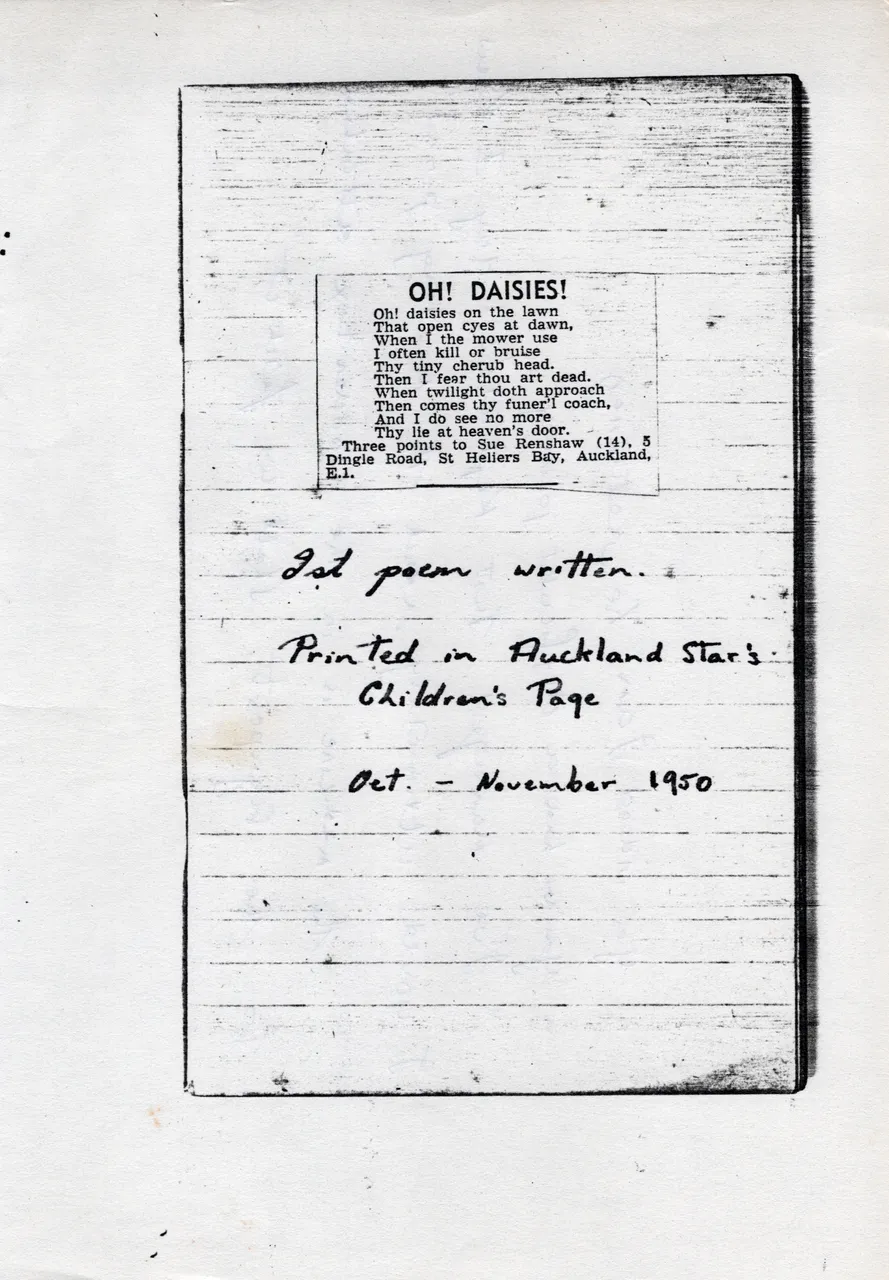 OH! DAISIES!
Oh! daisies on the lawn
That open eyes at dawn,
When I the mower use
I often kill or bruise
Thy tiny cherub head.
Then I fear thou art dead.
When twilight doth approach
Then comes thy funer'l coach,
And I do see no more
Thy lie at heaven's door.
Three points to Sue Renshaw (14), 5
Dingle Road, St Heliers Bay, Auckland,
E.1.
1st poem written.
Printed in Auckland Star's
Children's Page
Oct. - November 1950